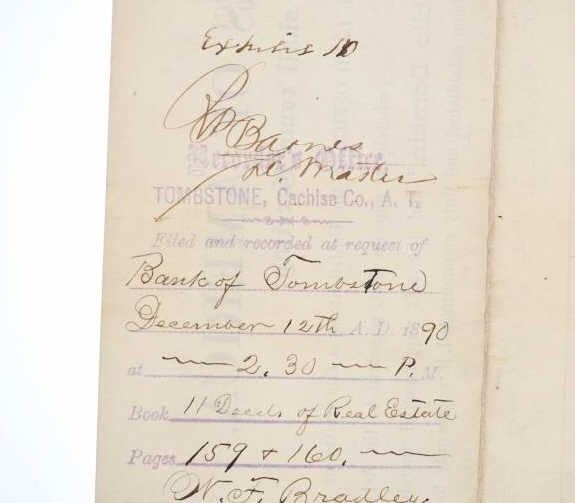 Exhibit 10
Barnes
Recorder's Office
Sp. Master
TOMBSTONE, Cachise Co., A. T.
Filed and recorded at request of
Bank of Tombstone
December 12th A. D. 1890
at 2. 30 P. M.
Book 11 Deeds of Real Estate
Pages 159 & 160.
W. F. Bradley,